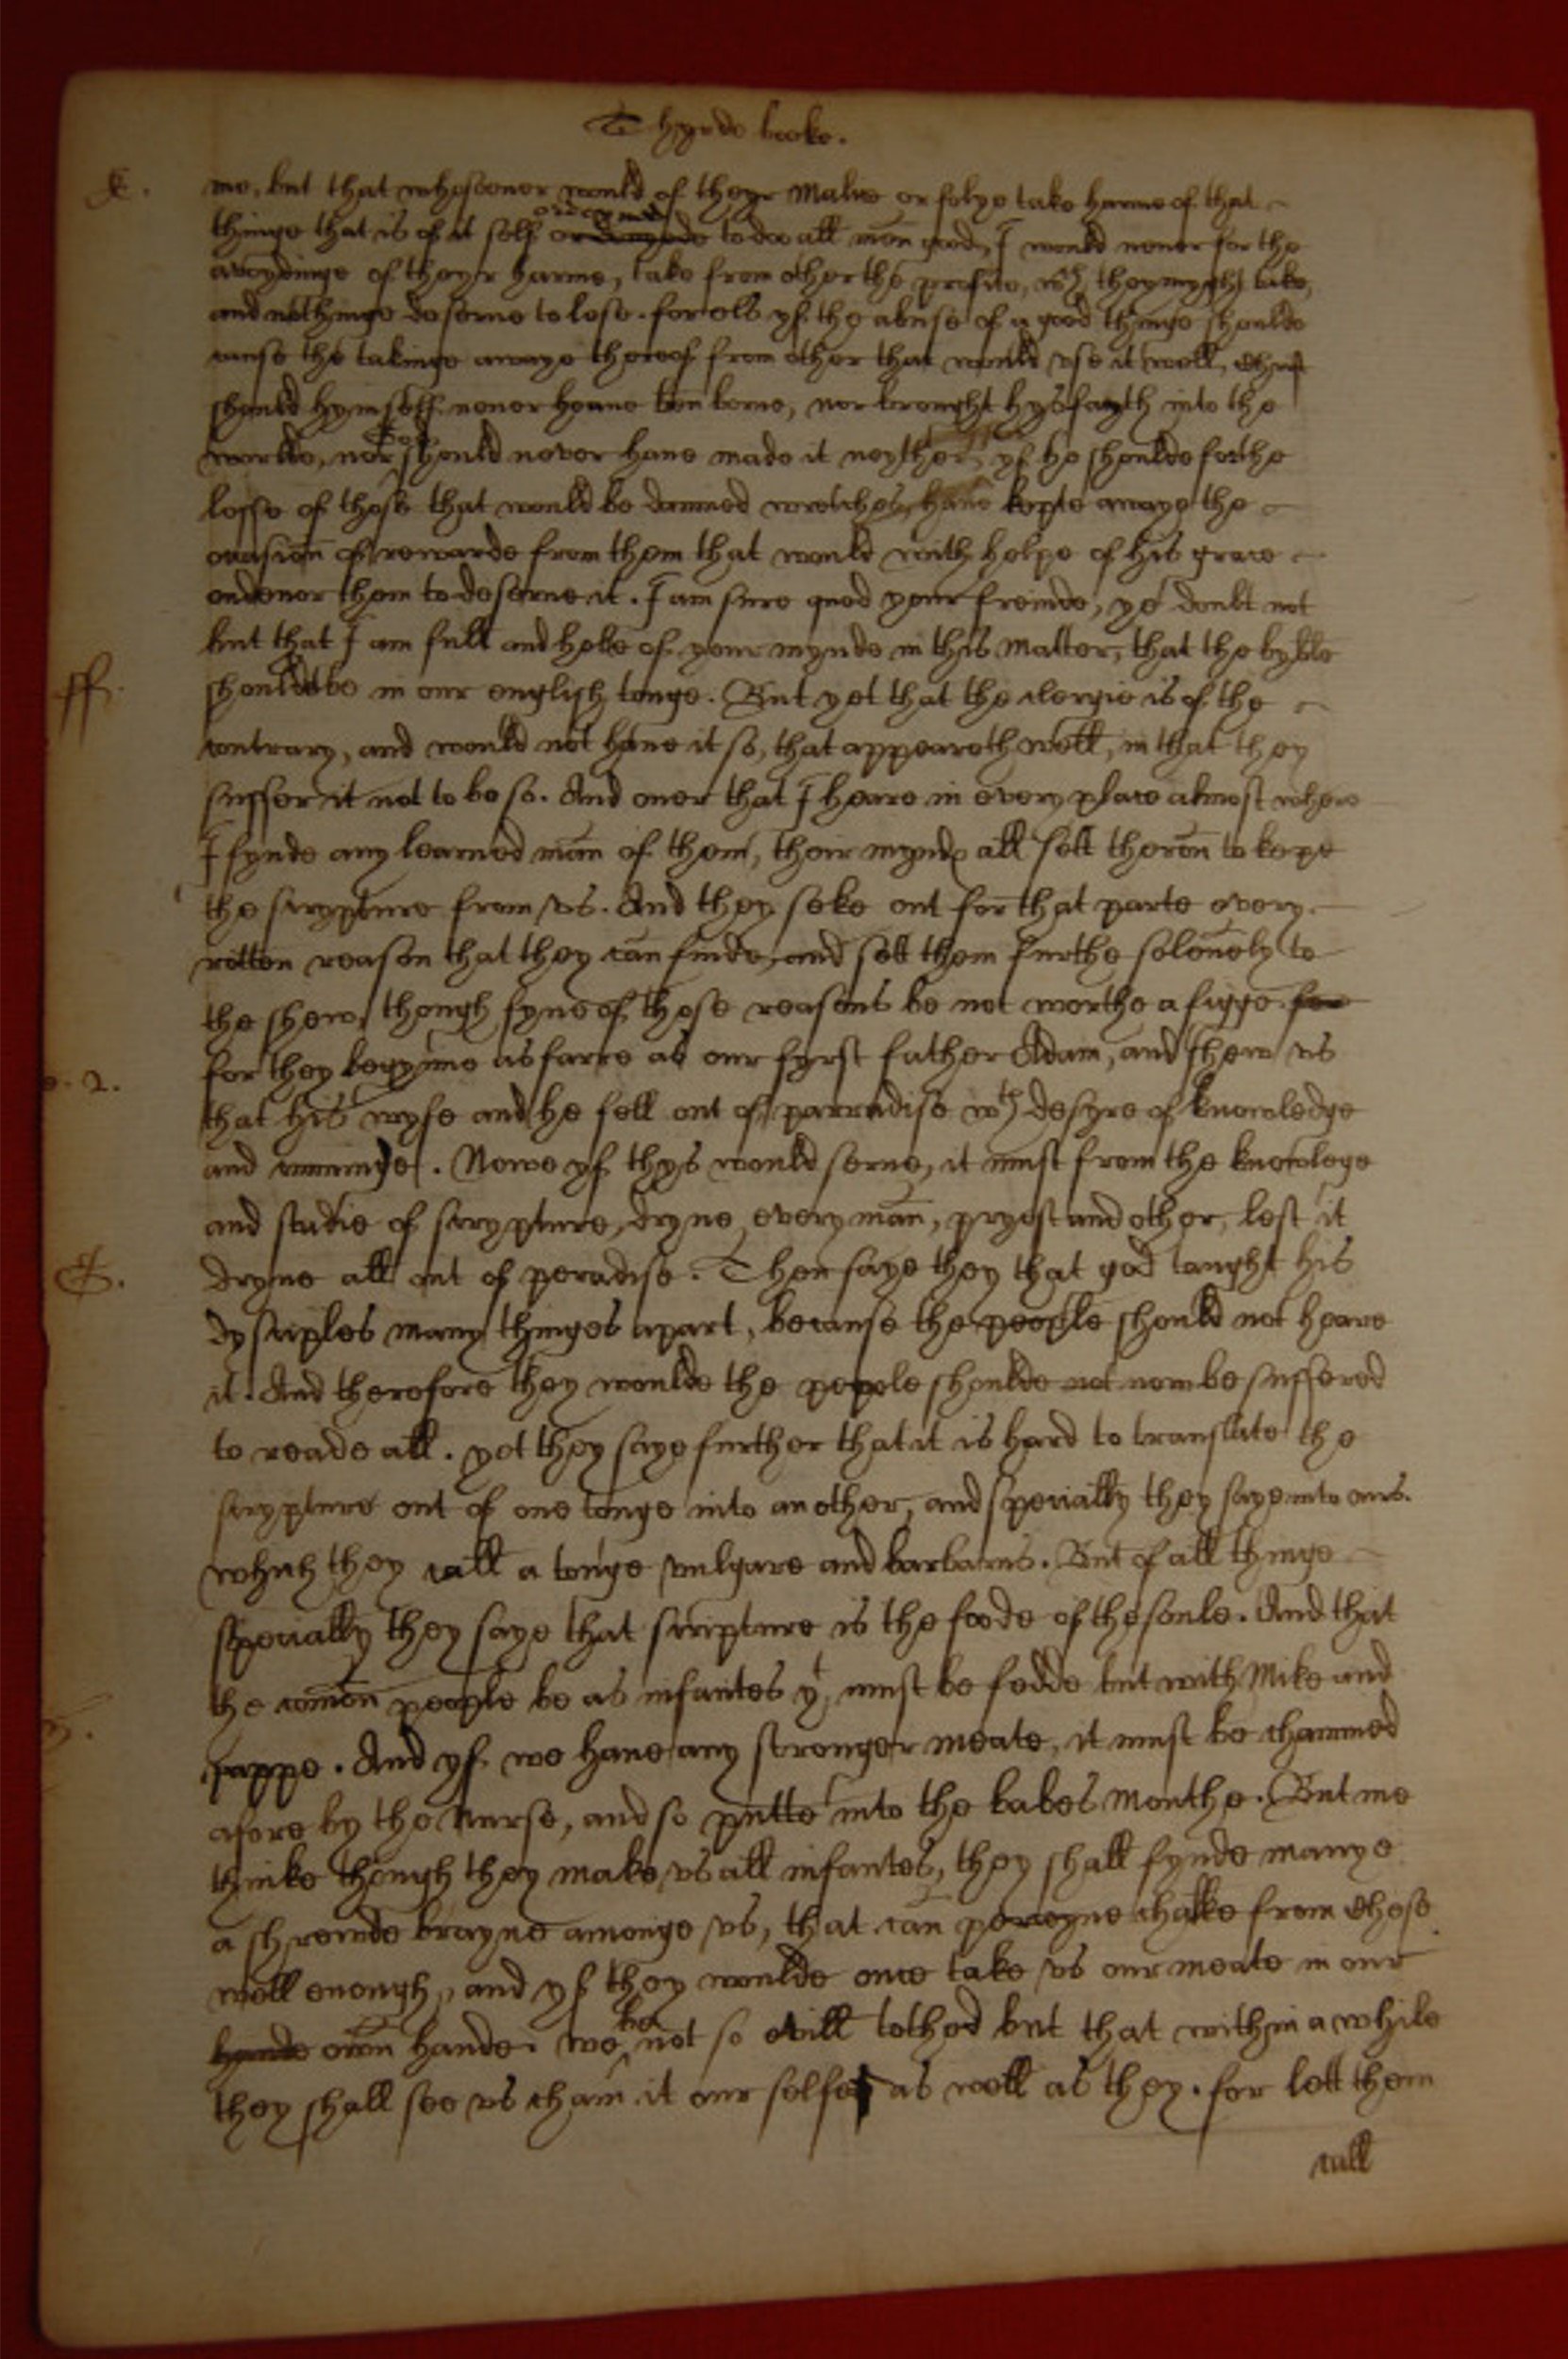 Thyrde booke.
E. me, but that whosoever would of theyr Malice or folye take harme of that
thinge that is of it self ordeyned to doo all men good, I would never for the
avoydinge of theyr harme, take from other the profite, wch they myght take,
and nothinge deserve to lese. for els yf the abuse of a good thinge shoulde
cause the takinge awaye thereof from other that would use it well, Christ
should hymself never heave ben borne, nor brought hys fayth into the
worlde, nor god should never have made it neyther, yf he shoulde for the
losse of those that would be damned wretches, have kepte awaye the
occasion of rewarde from them that would with helpe of his grace
endevor them to deserve it. I am sure quod your freinde, ye doubt not
but that I am full and hole of your mynde in this Matter, that the byble
ff. should be in our english tonge. But yet that the clergie is of the
contrary, and would not have it so, that appeareth well, in that they
suffer it not to be so. And over that I heare in every place almost where
I fynde any learned man of them, their mynde all sett theron to kepe
the scrypture from us. And they seke out for that parte every
rotten reason that they can finde, and sett them furthe solemnely to
the shew, though fyve of those reasons be not worthe a figge. for
for they begynne as farre as our fyrst father Adam, and shew us
e. 2. that his wyfe and he fell out of parradise wth desyre of knowledge
and cunninge. Nowe yf thys would serve, it must from the knowlege
and studie of scrypture, dryve every man, pryest and other, lest it
G. dryve all out of peradise. Then saye they that god taught his
dysciples many thinges apart, because the people should not heare
it. And therefore they woulde the people shoulde not now be suffered
to reade all. yet they saye further that it is hard to translate the
scrypture out of one tonge into an other, and specially they saye into ours.
which they call a tonge vulgare and barbarus. But of all thinge
specially they saye that scripture is the foode of the soule. And that
the comon people be as infantes yt must be fedde but with Milke and
pappe. And yf we have any stronger meate, it must be chammed
afore by the Nurse, and so putte into the babes Mouthe. But me
thinke though they make us all infantes, they shall fynde manye
a shrewde brayne amonge us, that can perceyve chalke from chese
well enough, and yf they woulde once take us our meate in our
hande own hande. we be not so evill tothed but that within a while
they shall see us cham it our selfes as well as they. for lett them
call